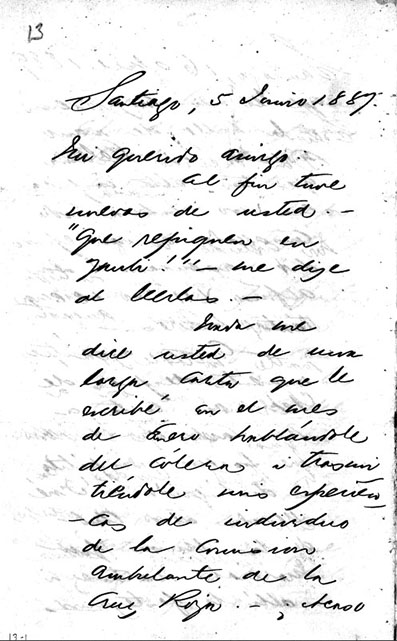 13
Santiago, 5 Junio 1887.
Mi querido amigo.
Al fin tuve
nuevas de usted. –
"Que repiquen en
Yauli!" – me dije
al leerlas. –
Nada me
dice usted de una
larga carta que le
escribí en el mes
de Enero hablándole
del cólera i trasmi
tiéndole mis experien
-cias de individuo
de la Comision
Ambulante de la
Cruz Roja. – ¿Acaso
13-1